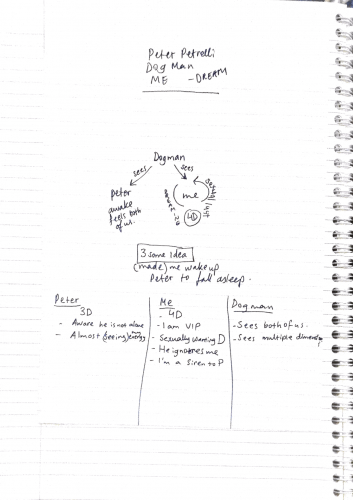 Peter Petrelli
Dog Man
ME - DREAM
Dogman
sees sees
Peter
awake
feels both
of us.
me
4D
sexual lust
3 some idea
(made) me wake up
Peter to fall asleep.
Peter
3D
- Aware he is not alone
- Almost (seeing) energy
Me
- 4D
- I am VIP
- Sexually wanting D
- He ignores me
- I'm a siren to P
Dogman
- Sees both of us.
- Sees multiple dimensions